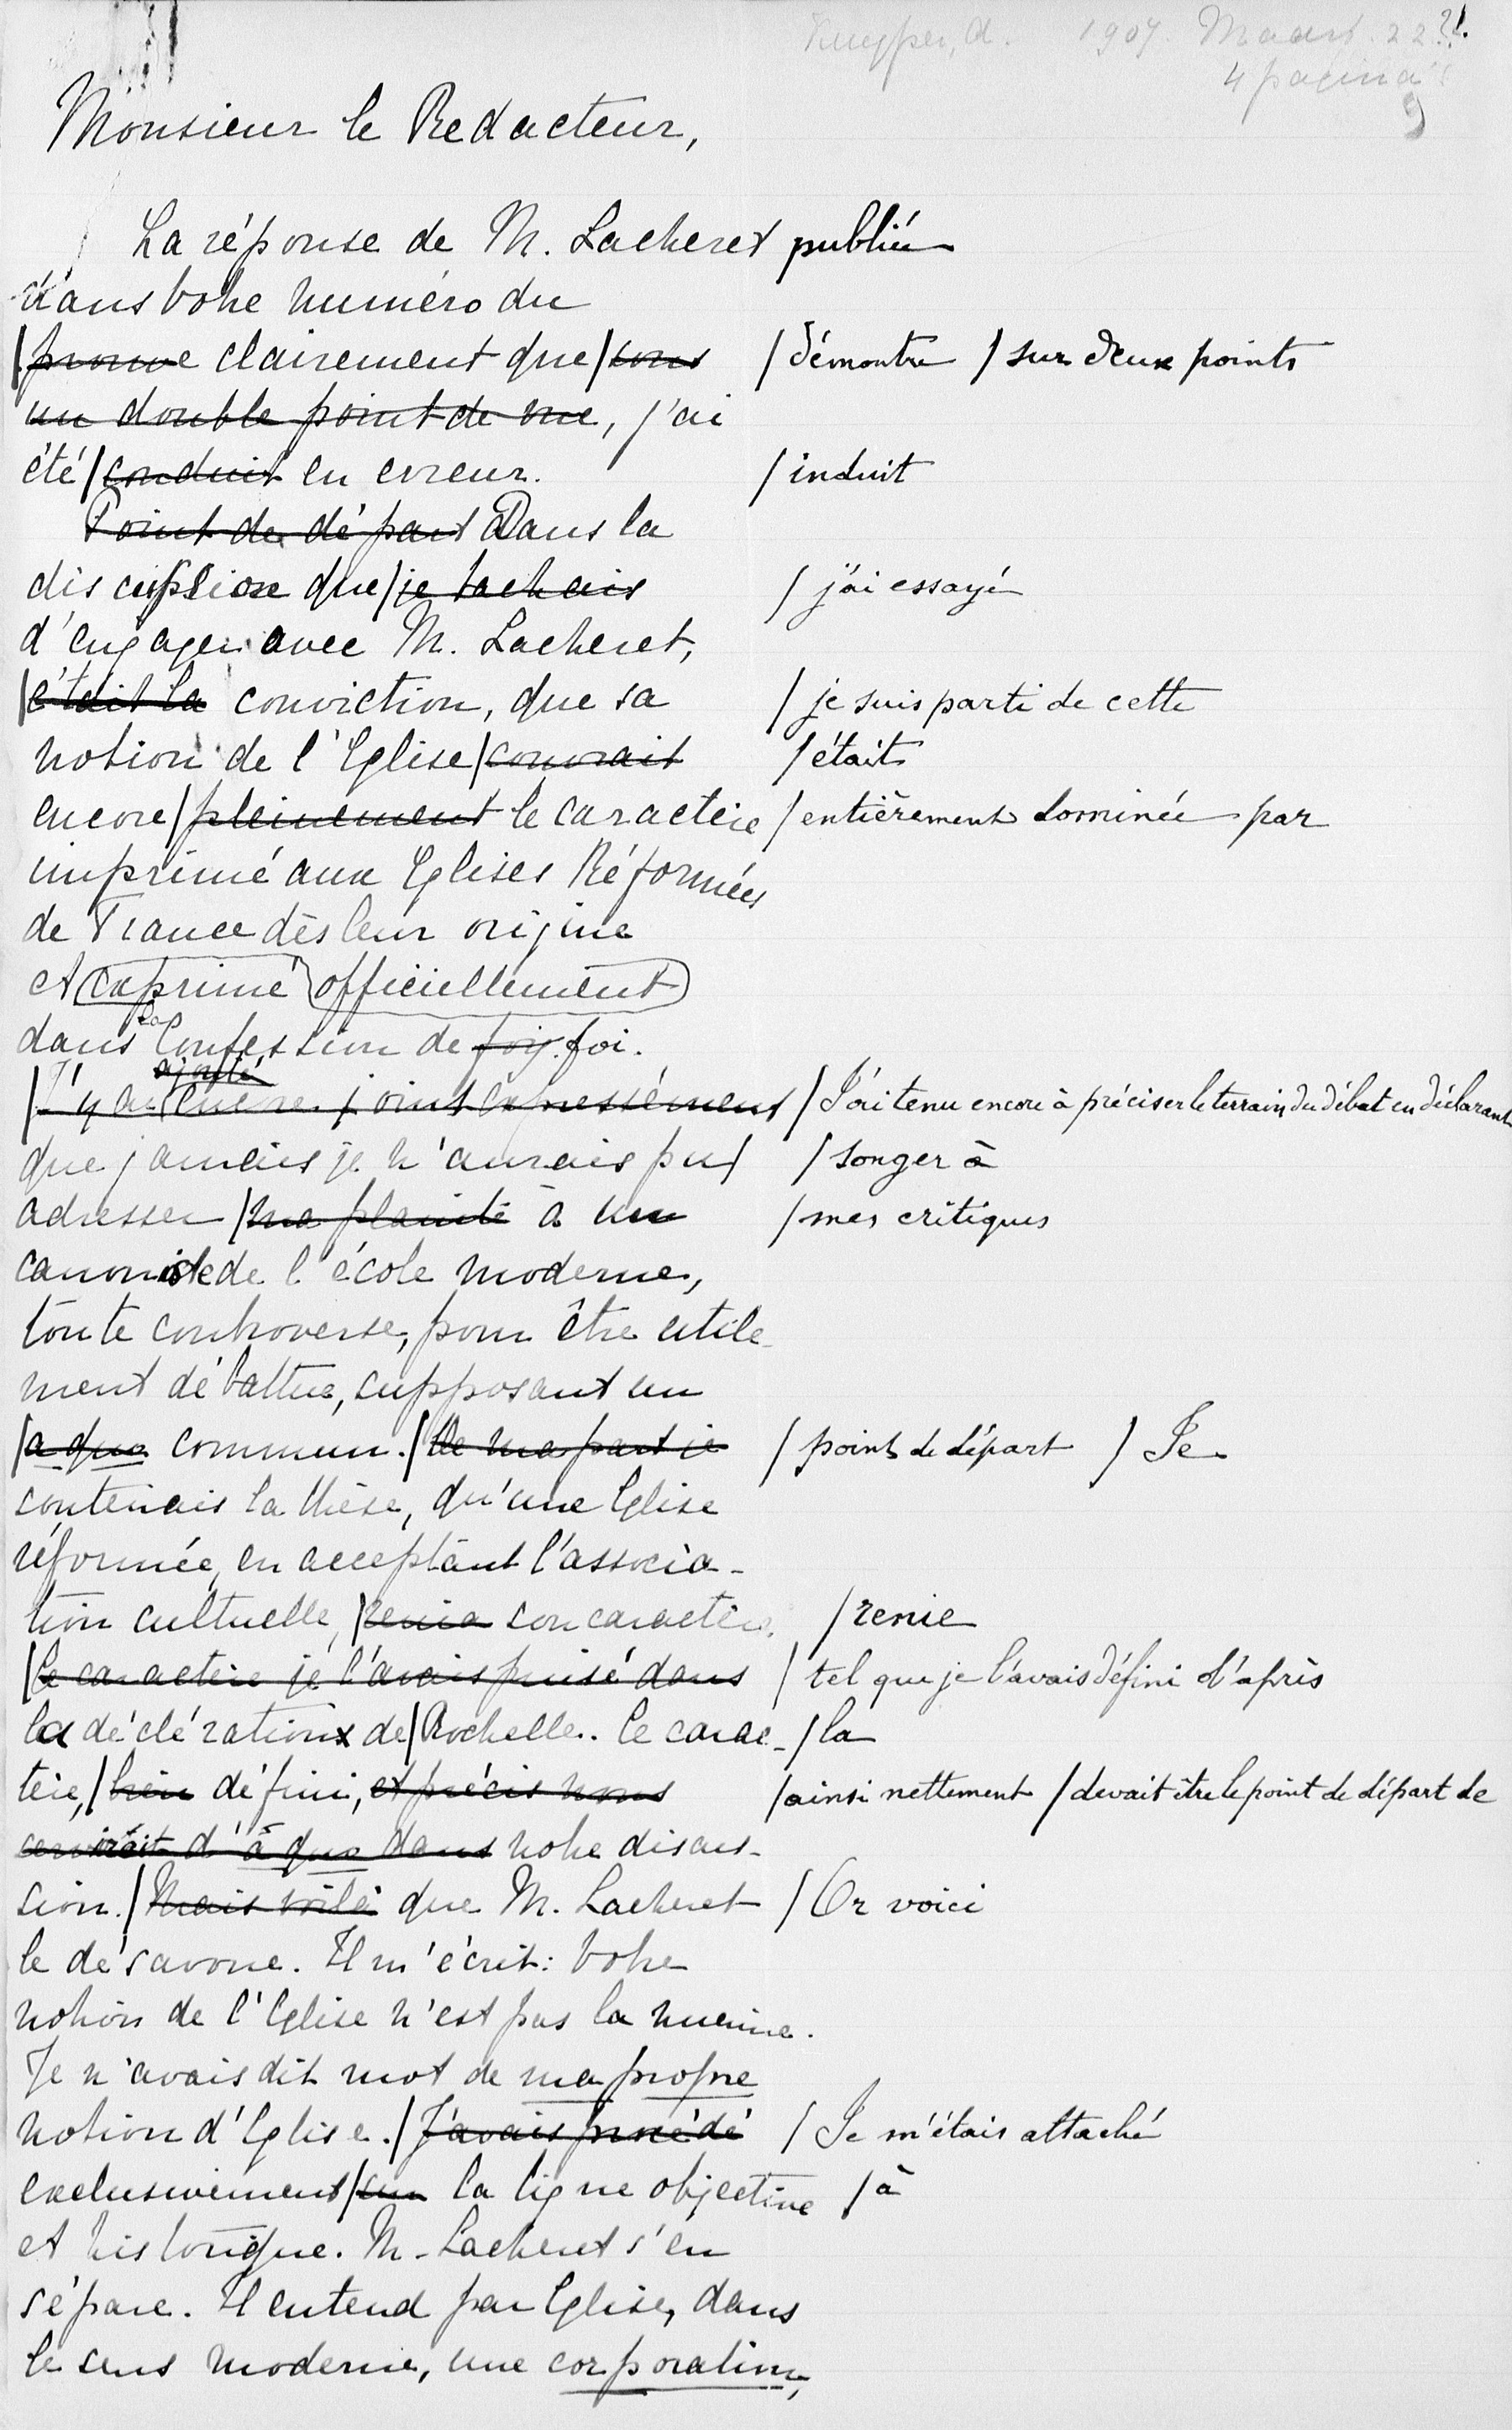 Kuyper, A. 1907. Maart. 22?!.
4 pagina's
Monsieur le Redacteur,
La réponse de M. Lacheret publiée
dans votre numéro du
/prouve clairement que /sous /démontre /sur deux points
un double point de vue, j'ai
été /conduit en erreur. /induit
Point de départ Dans la
discussion que /je tachais /j'ai essayé
d'engager avec M. Lacheret,
/c'était la conviction, que sa /je suis parti de cette
notion de l'Eglise /couvrait /était
encore /pleinement le caractère /entièrement dominée par
imprimé aux Eglises Réformées
de France dès leur origine
et exprimé officiellement
dans la Confession de foy. foi.
ajouté
/J'y ai encore joint expressément /J'ai tenu encore à préciser le terrain du débat en déclarant
que jamais je n'aurais pu / /songer à
adresser /ma plainte à un /mes critiques
canoniste de l'école moderne,
toute controverse, pour être utile-
ment débattue, supposant un
/a quo commun. /De ma part je /point de départ /Je
soutenais la thèse, qu'une Eglise
réformée, en acceptant l'associa-
tion cultuelle, /renia son caractère, /renie
/Ce caractère je l'avais puisé dans /tel que je l'avais défini d'après
la déclération de /Rochelle. Ce carac- /la
tère, /bien défini, et précis nous /ainsi nettement /devait être le point de départ de
servirait d'à quo dans notre discus-
sion. /Mais voilà que M. Lacheret /Or voici
le désavoue. Il m'écrit: votre
notion de l'Eglise n'est pas la mienne.
Je n'avais dit mot de ma propre
notion d'Eglise. /J'avais procédé /Je m'étais attaché
exclusivement /sur la ligne objective /à
et historique. M. Lacheret s'en
sépare. Il entend par Eglise, dans
le sens moderne, une corporation,